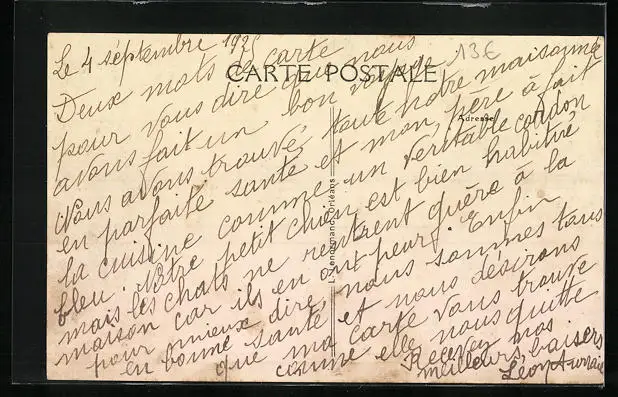 Le 4 septembre 1925
13€
CARTE POSTALE
Adresse
Deux mots de carte
pour vous dire que nous
avons fait un bon voyage
Nous avons trouvé, toute notre maisonnée
en parfaite santé et mon père à fait
la cuisine comme un veritable cordon
bleu. Notre petit chien est bien habitué
mais les chats ne rentrent guère à la
maison car ils en ont peur. Enfin
pour mieux dire, nous sommes tous
en bonne santé et nous désirons
que ma carte vous trouve
comme elle nous quitte
Recevez nos
meilleurs baisers
Lenormand, Orléans